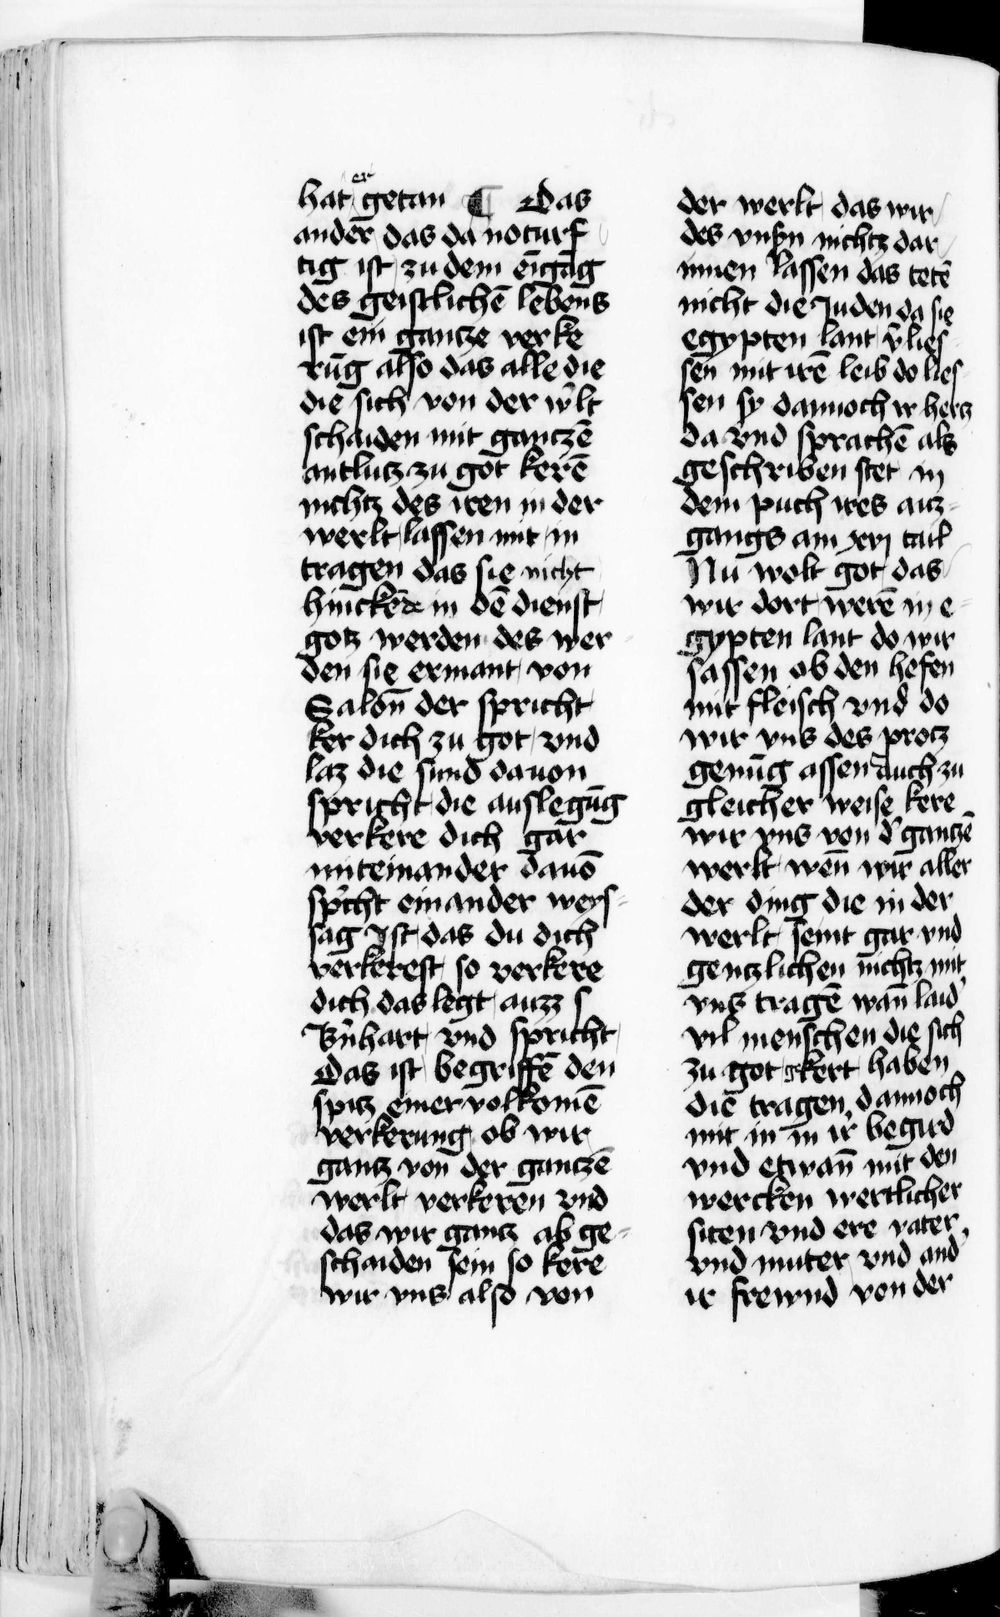 hat er getan ¶ Das
ander̄ das da noturf
tig ist zu dem eīgāg
des geistlichē lebens
ist ein gantze verke
rūg also das alle die
die sich von der w̄lt
schaiden mit gantzē
antlutz zu got kerē
nichtz des iren in der
werlt lassen mit in
tragen das sie nicht
hinckēde in dē dienst
gotz werden des wer-
den sie ermant von
Salon̄ der spricht
ker dich zu got vnd
laz die sund dauon
spricht die auslegūg
verkere dich gar
miteinander dauō
sp̄cht einander weys-
sag Ist das du dich
verkerest so verkere
dich das legt auzz s
Bn̄hart vnd spricht
Das ist begriffē den
spitz einer volkomē
verkerung ob wir
gantz von der gantzē
werlt verkeren vnd
das wir gantz ab ge-
schaiden sein so kere
wir vns also von
der werlt das wir
des vnsn̄ nichtz dar
innen lassen das tetē
nicht die Juden da sie
egypten lant v̄lies-
sen mit irē leib do lies-
sen sy dannoch ir hertz
da vnd sprachē als
geschriben stet in
dem puch ires auz-
gangs am xvj tail
Nu wolt got das
wir dort werē in e-
gypten lant do wir
sassen ob den hefen
mit fleisch vnd do
wir vns des protz
genūg assen auch zu
gleicher weise kere
wir vns von d' gantzē
werlt wen̄ wir aller
der ding die in der
werlt seint gar vnd
gentzlichen nichtz mit
vns tragē wan̄ laid'
vil menschen die sich
zu got gekert haben
die tragen dannoch
mit in in ir' begird
vnd etwan̄ mit den
wercken wertlicher
siten vnd ere vater
vnd muter vnd and'
ir frewnd von der